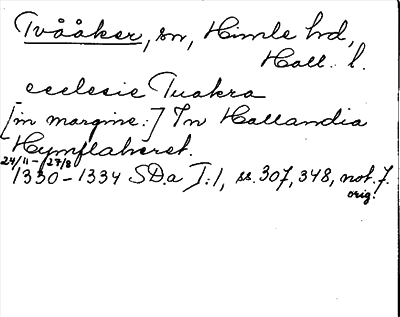 Tvååker, sn, Himle hd,
Hall. l.
ecclesie Tuakra
[in margine:] In Hallandia
Hymflaherst.
24/11 – 27/8
1330 – 1334 SD.a I:1, ss. 307, 348, not. 7.
orig.